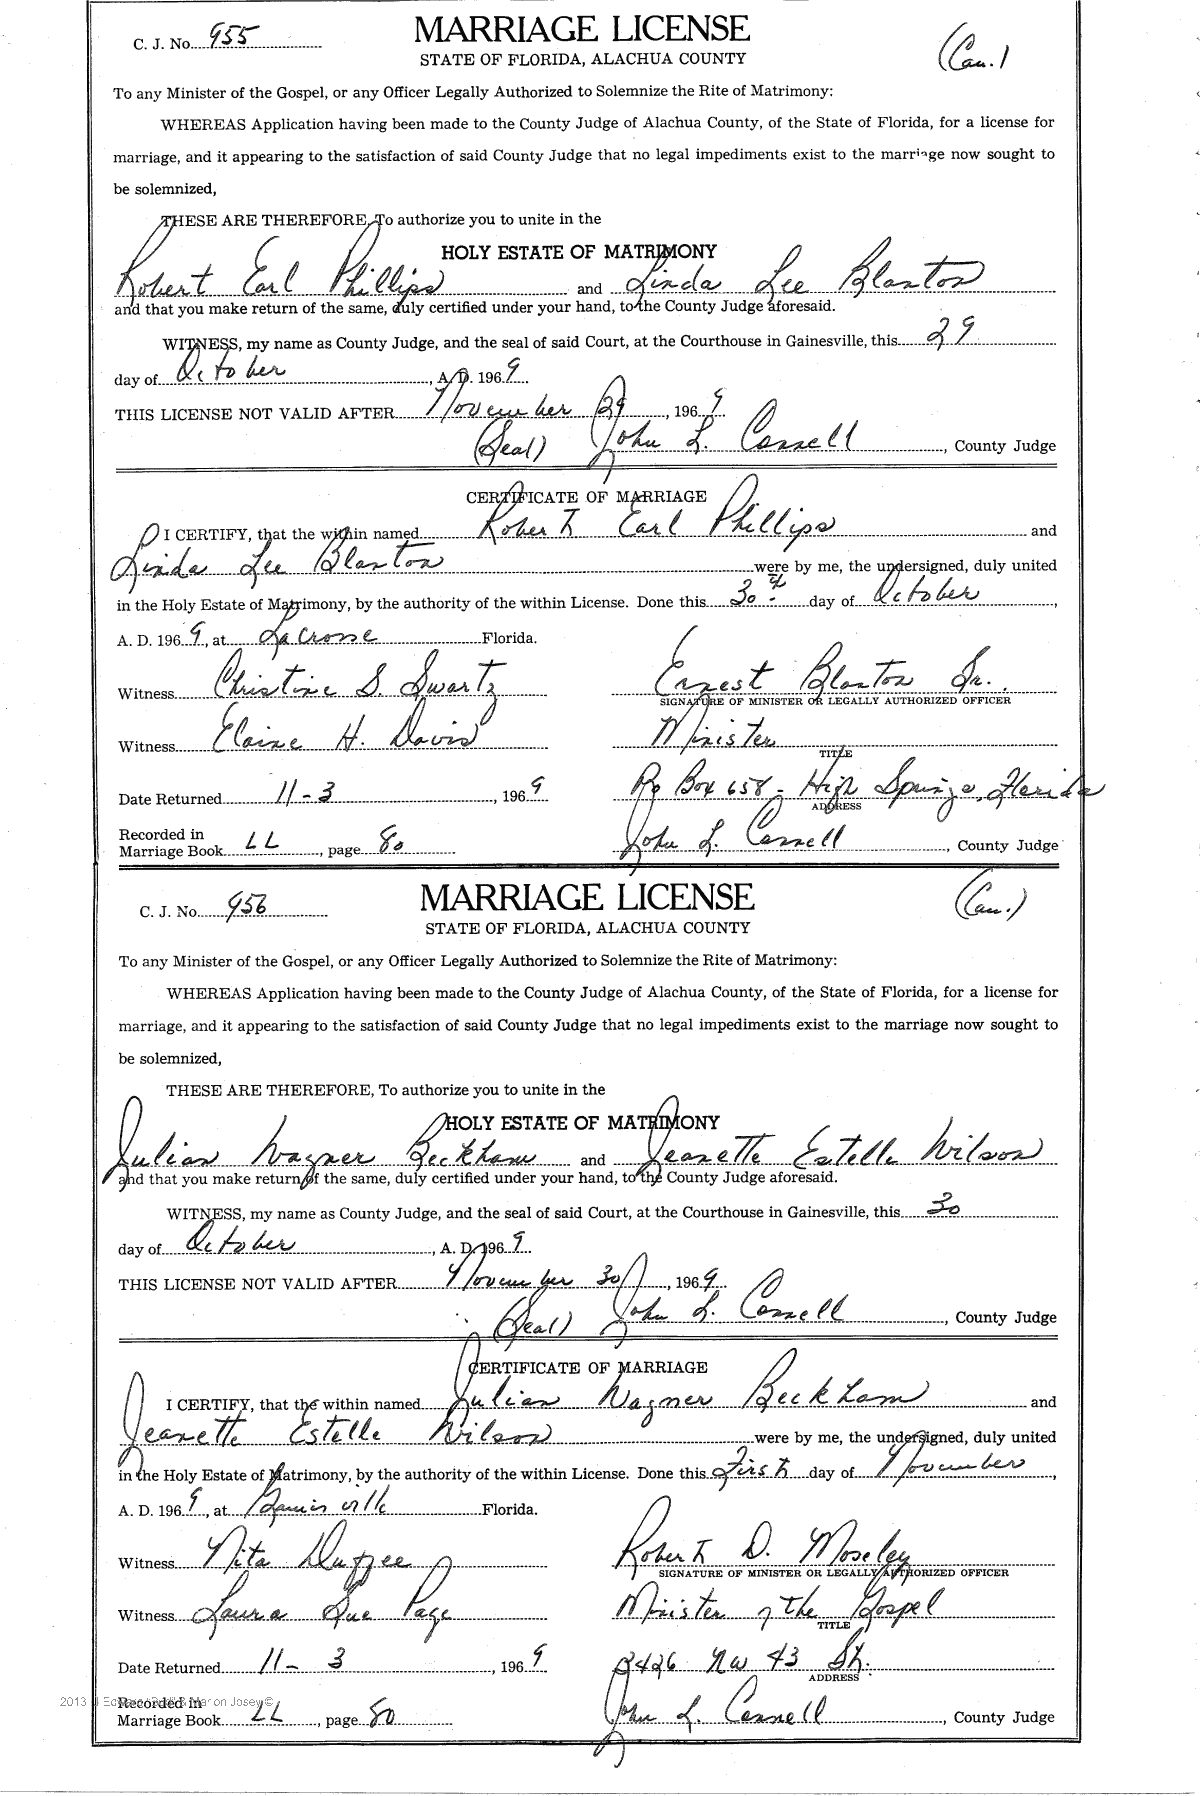 C. J. No. 955
MARRIAGE LICENSE
(Cau.)
STATE OF FLORIDA, ALACHUA COUNTY
To any Minister of the Gospel, or any Officer Legally Authorized to Solemnize the Rite of Matrimony:
WHEREAS Application having been made to the County Judge of Alachua County, of the State of Florida, for a license for
marriage, and it appearing to the satisfaction of said County Judge that no legal impediments exist to the marriage now sought to
be solemnized,
THESE ARE THEREFORE, To authorize you to unite in the
HOLY ESTATE OF MATRIMONY
Robert Earl Phillips and Linda Lee Blanton
and that you make return of the same, duly certified under your hand, to the County Judge aforesaid.
WITNESS, my name as County Judge, and the seal of said Court, at the Courthouse in Gainesville, this 29
day of October, A. D. 1969
THIS LICENSE NOT VALID AFTER November 29, 1969
(Seal) John L. Connell, County Judge
CERTIFICATE OF MARRIAGE
I CERTIFY, that the within named Robert Earl Phillips and
Linda Lee Blanton were by me, the undersigned, duly united
in the Holy Estate of Matrimony, by the authority of the within License. Done this 30th day of October,
A. D. 1969, at LaCrosse Florida.
Witness Christine S. Swartz Ernest Blanton Sr.
SIGNATURE OF MINISTER OR LEGALLY AUTHORIZED OFFICER
Witness Elaine H. Davis Minister
TITLE
Date Returned 11-3, 1969 Po Box 658 - High Springs, Florida
ADDRESS
Recorded in
Marriage Book LL, page 80 John L. Connell, County Judge
C. J. No. 956
MARRIAGE LICENSE
(Cau.)
STATE OF FLORIDA, ALACHUA COUNTY
To any Minister of the Gospel, or any Officer Legally Authorized to Solemnize the Rite of Matrimony:
WHEREAS Application having been made to the County Judge of Alachua County, of the State of Florida, for a license for
marriage, and it appearing to the satisfaction of said County Judge that no legal impediments exist to the marriage now sought to
be solemnized,
THESE ARE THEREFORE, To authorize you to unite in the
HOLY ESTATE OF MATRIMONY
Julian Wagner Beckham and Jeanette Estelle Wilson
and that you make return of the same, duly certified under your hand, to the County Judge aforesaid.
WITNESS, my name as County Judge, and the seal of said Court, at the Courthouse in Gainesville, this 30
day of October, A. D. 1969
THIS LICENSE NOT VALID AFTER November 30, 1969
(Seal) John L. Connell, County Judge
CERTIFICATE OF MARRIAGE
I CERTIFY, that the within named Julian Wagner Beckham and
Jeanette Estelle Wilson were by me, the undersigned, duly united
in the Holy Estate of Matrimony, by the authority of the within License. Done this First day of November,
A. D. 1969, at Gainesville Florida.
Witness Nita Robert D. Moseley
SIGNATURE OF MINISTER OR LEGALLY AUTHORIZED OFFICER
Witness Laura Sue Page Minister of the Gospel
TITLE
Date Returned 11-3, 1969 2426 NW 43 St.
ADDRESS
2013 J Edward
Recorded in
Marriage Book LL, page 80 John L. Connell, County Judge